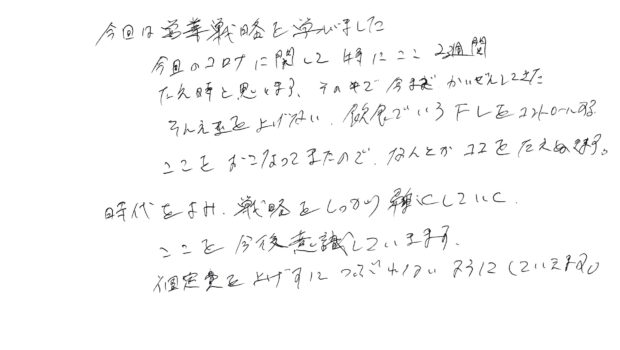 今回は営業戦略を学びました
今回のコロナに関して特にここ2週間
たえ時と思います、その中で今までかいぜんしてきた
そんえきを上げない、飲食でいうFLをコントロールする
ここをおこなってきたので、なんとかココをたえぬきます。
時代をよみ、戦略をしっかり にしていく、
ここを今後意識していきます。
固定費を上げずに つぶれないようにしていきます。